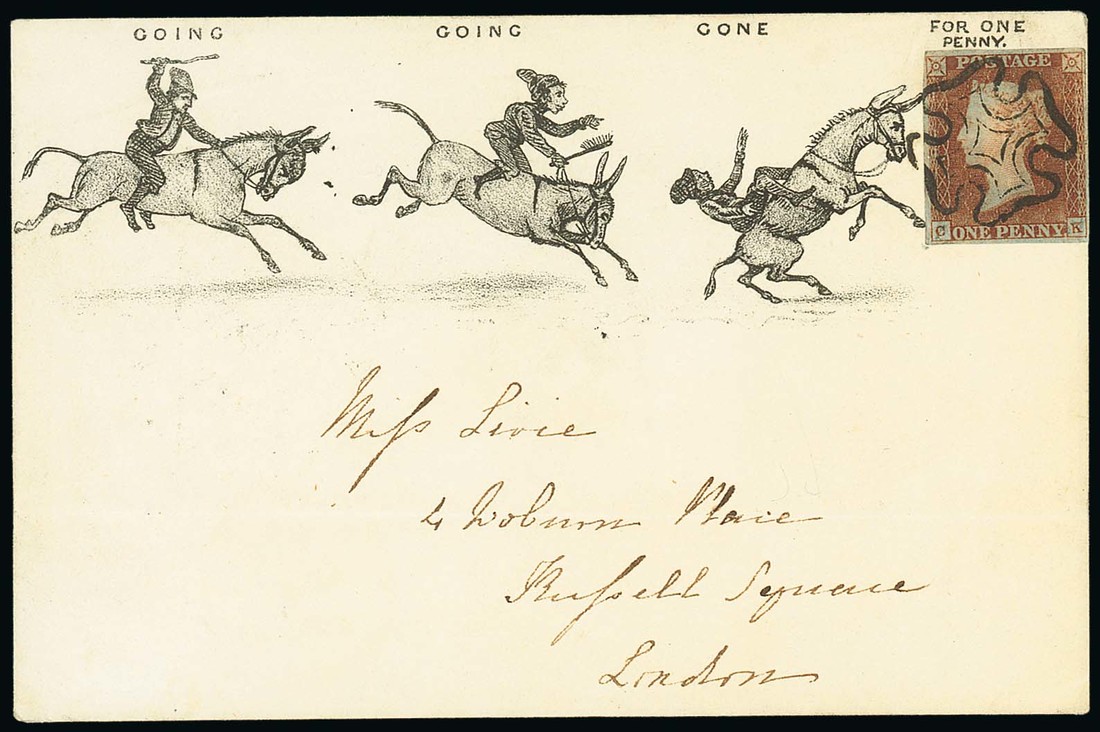 GOING
GOING
GONE
FOR ONE
PENNY.
POSTAGE
C ONE PENNY K
Miss Livie
4 Woburn Place
Russell Square
London